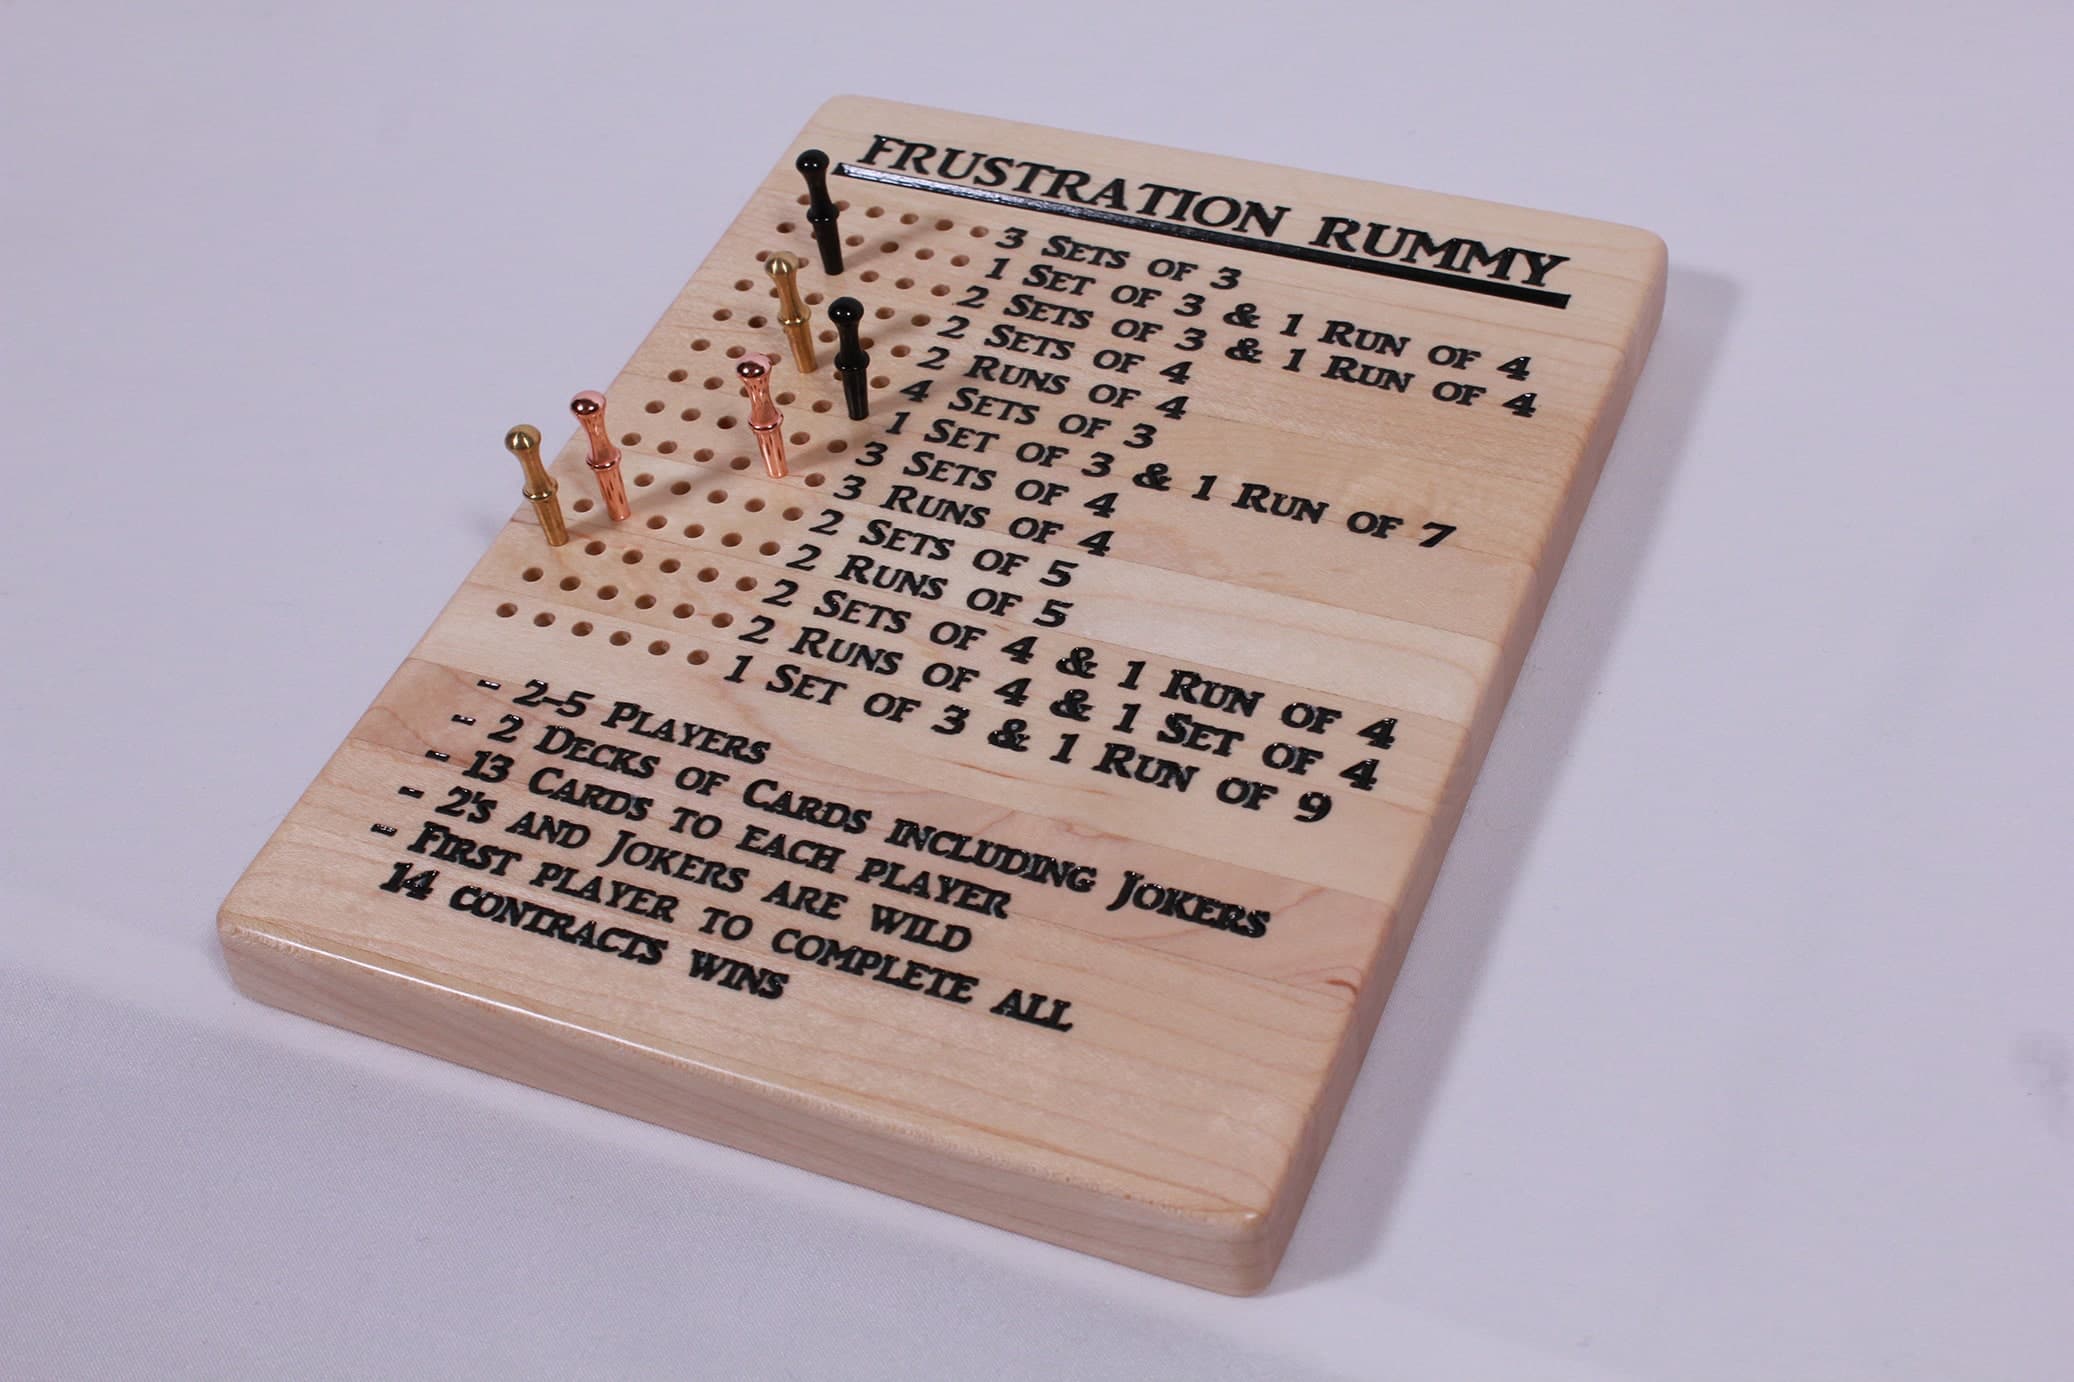 FRUSTRATION RUMMY
3 SETS OF 3
1 SET OF 3 & 1 RUN OF 4
2 SETS OF 3 & 1 RUN OF 4
2 SETS OF 4
2 RUNS OF 4
4 SETS OF 3
1 SET OF 3 & 1 RUN OF 7
3 SETS OF 4
3 RUNS OF 4
2 SETS OF 5
2 RUNS OF 5
2 SETS OF 4 & 1 RUN OF 4
2 RUNS OF 4 & 1 SET OF 4
1 SET OF 3 & 1 RUN OF 9
- 2-5 PLAYERS
- 2 DECKS OF CARDS INCLUDING JOKERS
- 13 CARDS TO EACH PLAYER
- 2'S AND JOKERS ARE WILD
- FIRST PLAYER TO COMPLETE ALL
14 CONTRACTS WINS